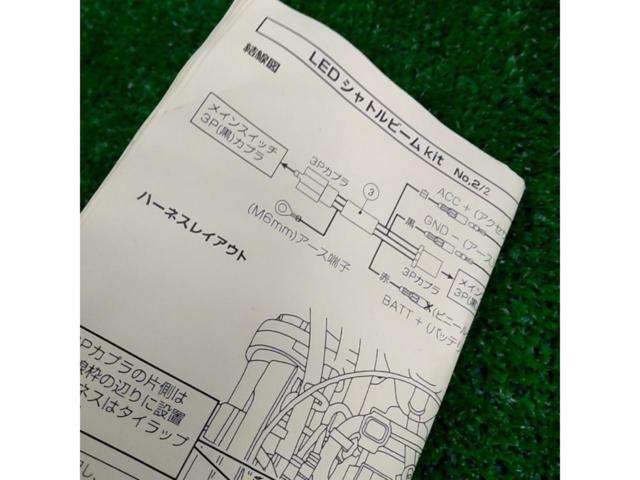 LEDシャトルビームkit No.2/2
結線図
メインスイッチ
3P(黒)カプラ
3Pカプラ
3
(M6mm)アース端子
白
ACC + (アクセ
黒
GND - (アース
3Pカプラ
メイン
3P(黒
赤
(ビニール
BATT + (バッテリ
ハーネスレイアウト
Pカプラの片側は
枠の辺りに設置
ネスはタイラップ